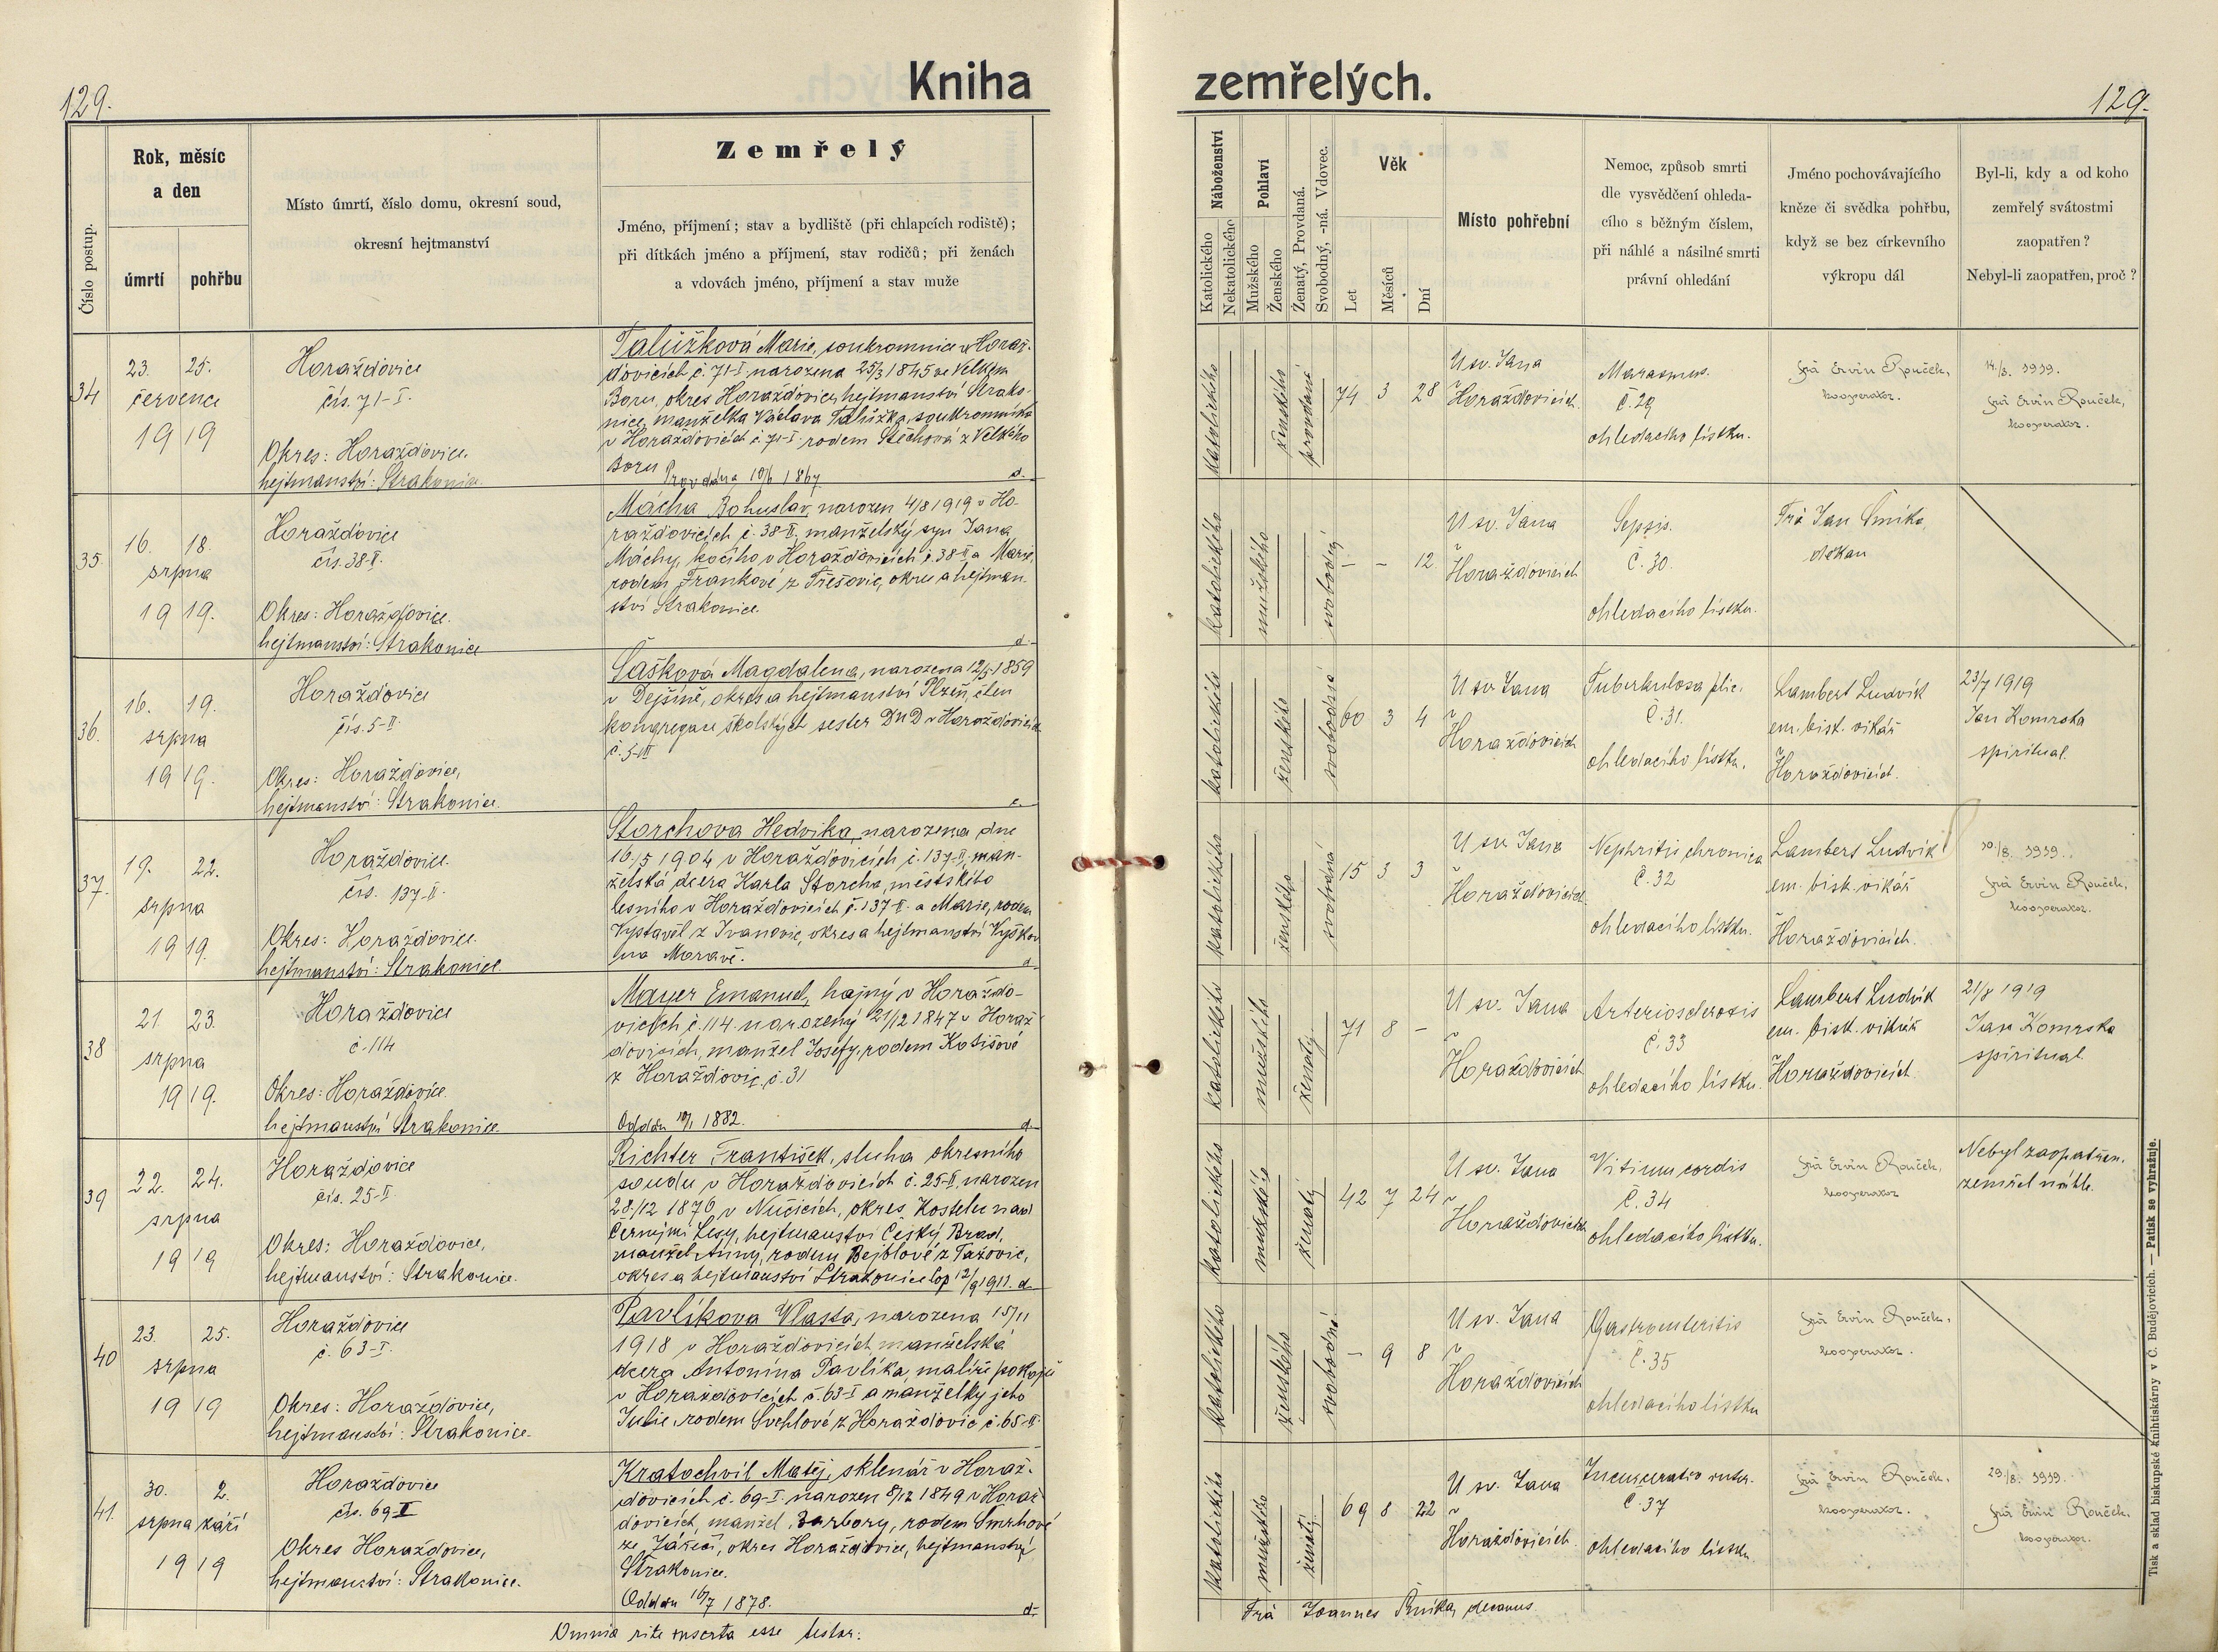 129.
Kniha
Číslo postup.
Rok, měsíc
a den
úmrtí
pohřbu
Místo úmrtí, číslo domu, okresní soud,
okresní hejtmanství
Zemřelý
Jméno, příjmení; stav a bydliště (při chlapcích rodiště);
při dítkách jméno a příjmení, stav rodičů; při ženách
a vdovách jméno, příjmení a stav muže
34
23. 25.
července
1919
Horažďovice
čís. 71-I.
Okres: Horažďovice.
hejtmanství: Strakonice.
Talůžková Marie, soukromnice v Horaž-
ďovicích č. 71-I narozena 25/3 1845 ve Velkém
Boru, okres Horažďovice, hejtmanství Strako-
nice, manželka Václava Talůžka, soukromníka
v Horažďovicích č. 71-I. rodem Štěchová z Velkého
Boru Provdána 10/6 1867 d.
35.
16. 18.
srpna
1919.
Horažďovice
čís. 38-II.
Okres: Horažďovice.
hejtmanství: Strakonice
Mácha Bohuslav, narozen 4/8 1919 v Ho-
ražďovicích č. 38-II, manželský syn Jana
Máchy, kočího v Horažďovicích č. 38-II a Marie,
rodem Frankové z Třešovic, okres a hejtman-
ství Strakonice.
d.
36.
16. 19.
srpna
1919.
Horažďovice
čís. 5-II.
Okres: Horažďovice,
hejtmanství: Strakonice.
Šašková Magdalena, narozena 12/5 1859
v Dejšině, okres a hejtmanství Plzeň, člen
kongregace školských sester DND v Horažďovicích
č. 5-II
37.
19. 22.
srpna
1919.
Horažďovice.
čís. 137-II.
Okres: Horažďovice.
hejtmanství: Strakonice.
Storchova Hedvika, narozena dne
16/5 1904 v Horažďovicích č. 137-II, man-
želská dcera Karla Storcha, městského
lesního v Horažďovicích č. 137-II. a Marie, rodem
Vystavěl z Ivanovic, okres a hejtmanství Vyškov
na Moravě. d
38
21. 23.
srpna
1919.
Horažďovice
č. 114
Okres: Horažďovice.
hejtmanství Strakonice.
Mayer Emanuel, hajný v Horažďo-
vicích č. 114. narozený 21/12 1847 v Horaž-
ďovicích, manžel Josefy, rodem Kotišové
z Horažďovic, č. 31
Oddán 10/1 1882. d.
39
22. 24.
srpna
1919
Horažďovice
čís. 25-II.
Okres: Horažďovice,
hejtmanství: Strakonice.
Richter František, sluha okresního
soudu v Horažďovicích č. 25-II, narozen
28/12 1876 v Nučicích, okres Kostelec nad
Černými Lesy, hejtmanství Český Brod,
manžel Anny, rodem Bejblové z Tažovic,
okres a hejtmanství Strakonice Cop 12/9 1911. d.
40
23. 25.
srpna
1919
Horažďovice
č. 63-I.
Okres: Horažďovice,
hejtmanství: Strakonice.
Pavlíkova Vlasta, narozena 15/11
1918 v Horažďovicích, manželská
dcera Antonína Pavlíka, malíře pokojů
v Horažďovicích č. 63-I a manželky jeho
Julie, rodem Švehlové z Horažďovic č. 65-II.
41.
30. 2.
srpna září
1919
Horažďovice
čís. 69-I
Okres Horažďovice,
hejtmanství: Strakonice.
Kratochvíl Matěj, sklenář v Horaž-
ďovicích č. 69-I. narozen 8/12 1849 v Horaž-
ďovicích, manžel Barbory, rodem Smrhové
ze Zářečí, okres Horažďovice, hejtmanství
Strakonice.
Oddán 16/7 1878. d.
Omnia rite inserta esse testor:
zemřelých.
129.
Náboženství
Katolického
Nekatolického
Pohlaví
Mužského
Ženského
Ženatý, Provdaná.
Svobodný, -ná. Vdovec.
Věk
Let
Měsíců
Dní
Místo pohřební
Nemoc, způsob smrti
dle vysvědčení ohleda-
cího s běžným číslem,
při náhlé a násilné smrti
právní ohledání
Jméno pochovávajícího
kněze či svědka pohřbu,
když se bez církevního
výkropu dál
Byl-li, kdy a od koho
zemřelý svátostmi
zaopatřen?
Nebyl-li zaopatřen, proč?
katolického
ženského
provdaná
74 3 28
U sv. Jana
v
Horažďovicích.
Marasmus.
č. 29
ohledacího lístku.
Frá Ervín Rouček,
kooperator.
14./3. 1919.
Frá Ervín Rouček,
kooperator.
katolického
mužského
svobodný
– – 12
U sv. Jana
v
Horažďovicích
Sepsis.
č. 30.
ohledacího lístku.
Frá Jan Šmika,
děkan
katolického
ženského
svobodná
60 3 4
U sv. Jana
v
Horažďovicích
Tuberkulosa plic.
č. 31.
ohledacího lístku.
Lambert Ludvík
em. bisk. vikář
Horažďovicích.
23/7 1919
Jan Komrska
spirituál.
katolického
ženského
svobodná
15 3 3
U sv. Jana
v
Horažďovicích.
Nephritis chronica
č. 32
ohledacího lístku.
Lambert Ludvík
em. bisk. vikář
v
Horažďovicích.
10./8. 1919.
Frá Ervín Rouček,
kooperator.
katolického
mužského
ženatý
71 8 –
U sv. Jana
v
Horažďovicích
Arteriosclerosis
č. 33
ohledacího lístku.
Lambert Ludvík
em. bisk. vikář
Horažďovicích.
21/8 1919
Jan Komrska
spirituál
katolického
mužského
ženatý
42 7 24
U sv. Jana
v
Horažďovicích
Vitium cordis
č. 34
ohledacího lístku.
Frá Ervín Rouček,
kooperator
Nebyl zaopatřen.
zemřel náhle.
katolického
ženského
svobodná
– 9 8
U sv. Jana
v
Horažďovicích
Gastroenteritis
č. 35
ohledacího lístku
Frá Ervín Rouček,
kooperator.
katolického
mužského
ženatý
69 8 22
U sv. Jana
v
Horažďovicích.
č. 37
ohledacího lístku.
Frá Ervín Rouček,
kooperator.
29./8. 1919.
Frá Ervín Rouček,
kooperator.
Frá Joannes Šmika, decanus
Tisk a sklad biskupské knihtiskárny v Č. Budějovicích. — Patisk se vyhražuje.